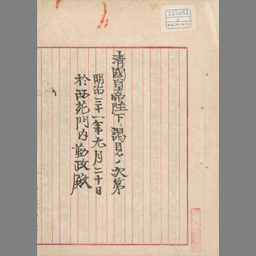 清國皇帝陛下ニ謁見ノ次第
明治三十一年九月二十日
於西苑門内勤政殿